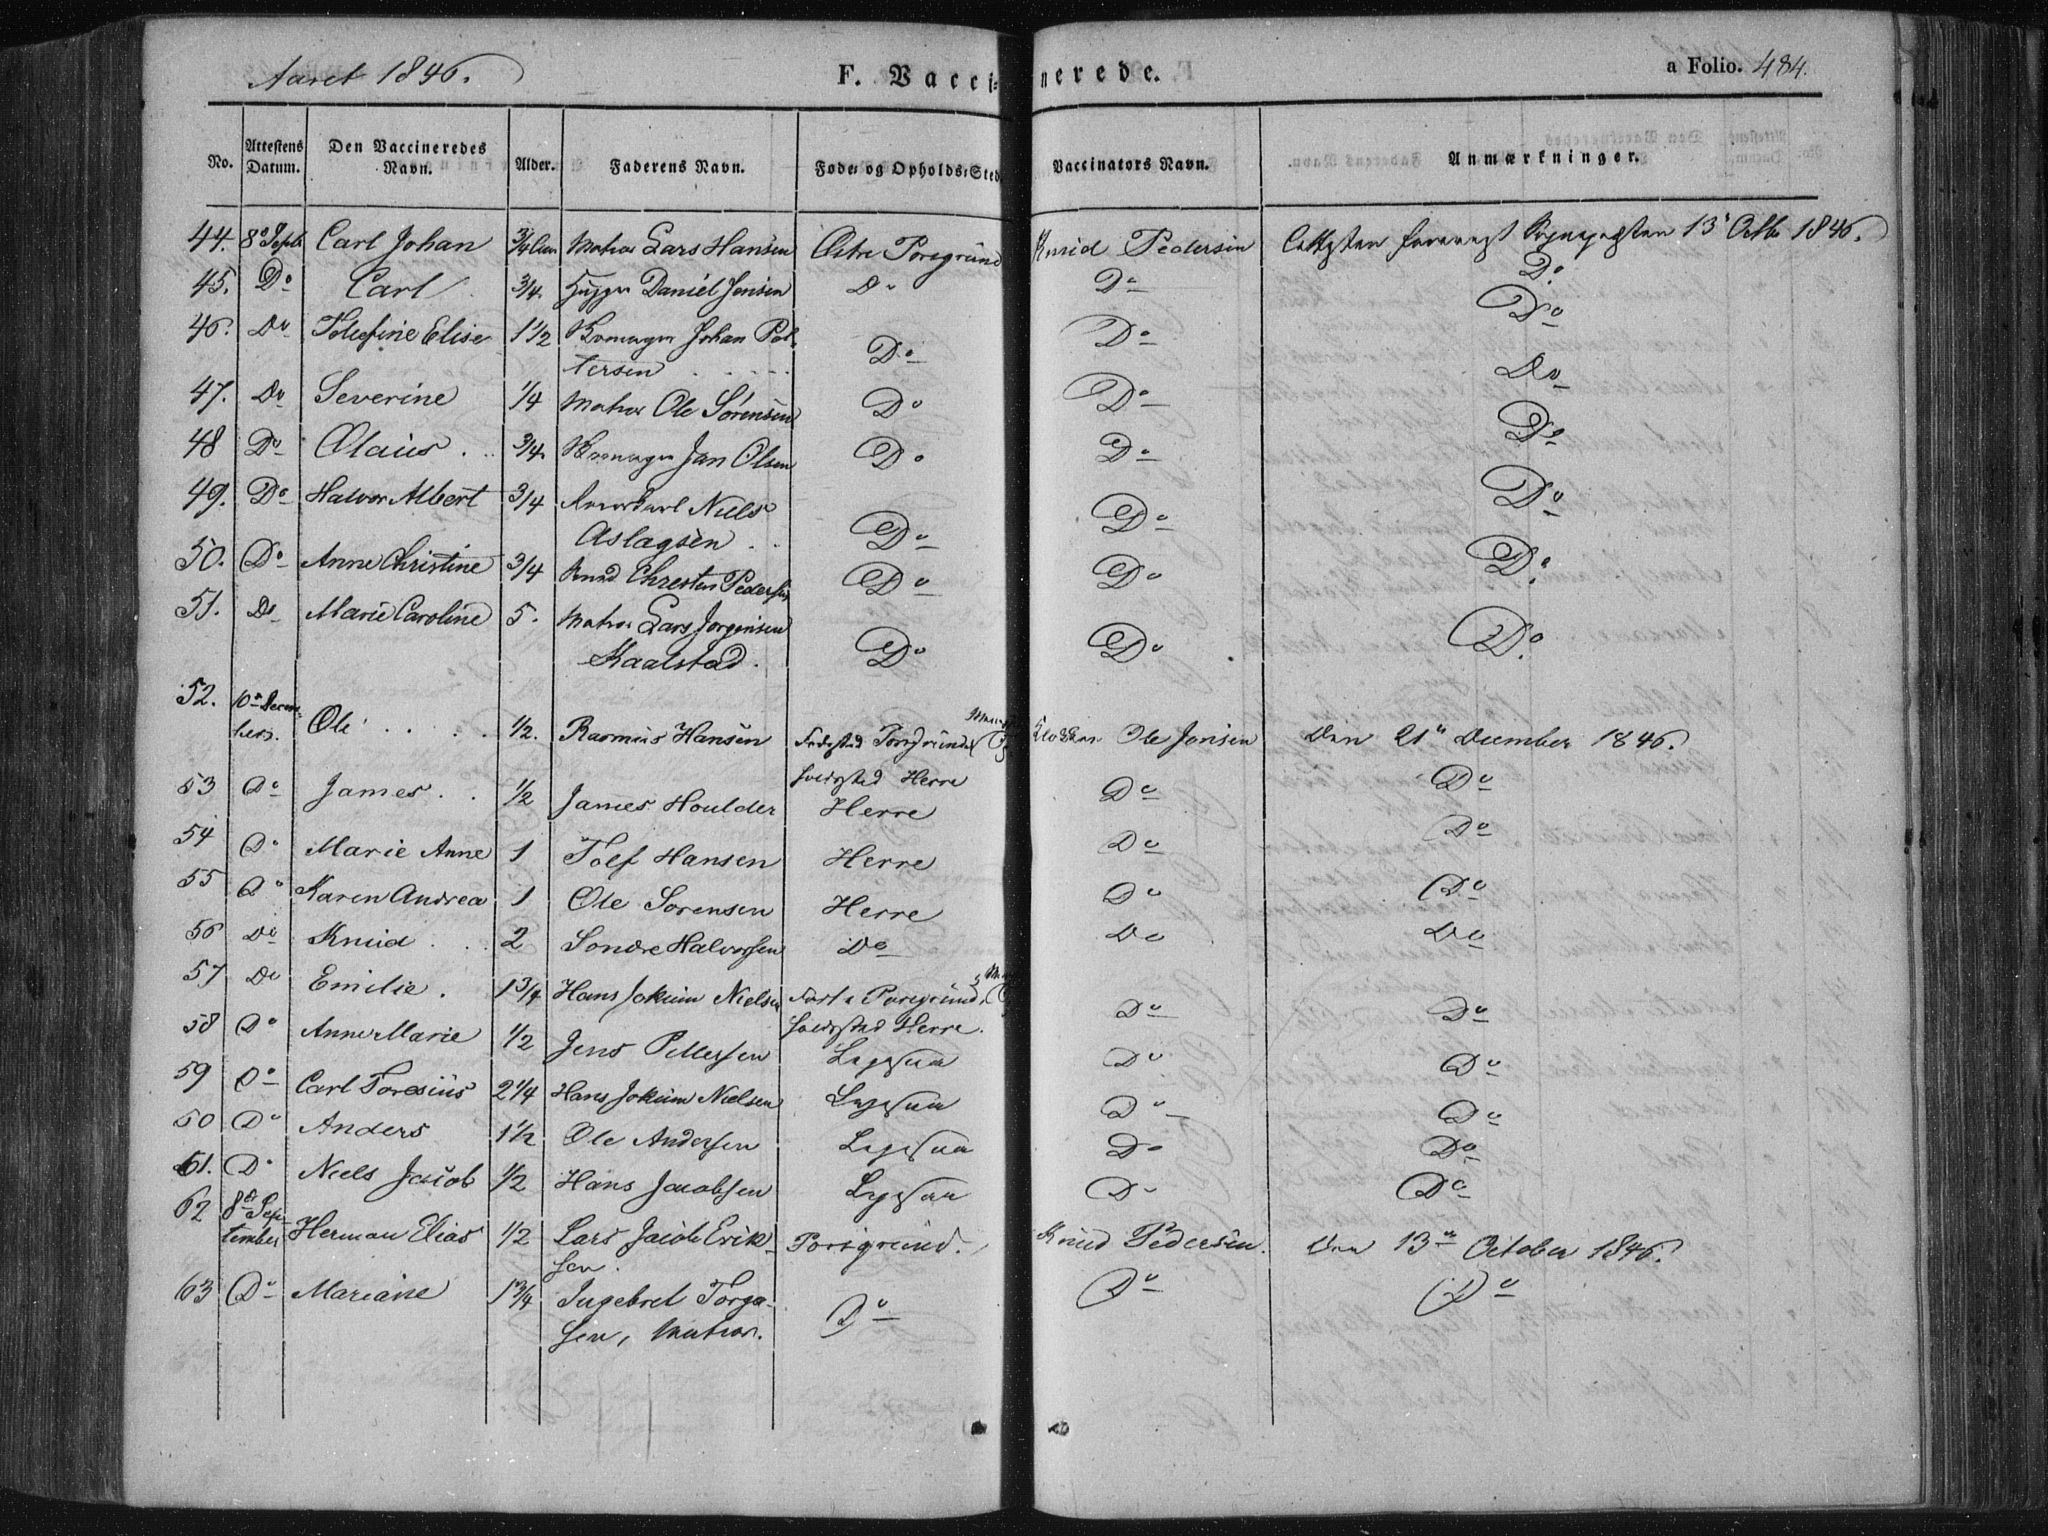 Aaret 1846. F. Vaccinerede. a Folio. 484.
No. Attestens Datum. Den Vaccineredes Navn. Alder. Faderens Navn. Føde- og Opholds-Sted Vaccinators Navn. Anmærkninger.
44. 8de Septb Carl Johan 3/4 Aar Matros Lars Hansen Østre Porsgrund Knud Pedersen 13de Octb 1846.
45. Do Carl 3/4. Daniel Jensen Do Do Do
46. Do Josefine Elise 1 1/2 Johan Pet-
tersen Do Do Do
47. Do Severine 1/4 Matros Ole Sørensen Do Do Do
48 Do Olaus 3/4. Jan Olsen Do Do Do
49. Do Halvor Albert 3/4 Niels
Aslagsen Do Do Do
50. Do Anne Christine 3/4 Knud Christen Pedersen Do Do Do
51. Do Marie Caroline 5. Matros Lars Jørgensen
Kaalstad. Do Do Do
52. 10de Decem-
bers. Ole 1/2. Rasmus Hansen Fødested Porsgrund Klokker Ole Jensen Den 21de December 1846.
Herre
53 Do James 1/2 James Houlder Herre Do Do
54 Do Marie Anne 1 Tolf Hansen Herre Do Do
55 Do Karen Andrea 1 Ole Sorensen Herre Do Do
56 Do Knud 2 Sondre Halvorsen Do Do Do
57 Do Emilie. 1 3/4 Hans Jokum Nielsen Porsgrund Do Do
Herre.
58 Do Anne Marie 1/2 Jens Pettersen Do Do
59 Do Carl Toresius 2 1/4 Hans Jokum Nielsen Do Do
60 Do Anders 1 1/2 Ole Andersen Do Do
61. Do Niels Jacob 1/2 Hans Jacobsen Do Do
62 8de Sep-
tember Herman Elias 1/2 Lars Jacob Erik-
sen. Porsgrund. Knud Pedersen. Den 13de October 1846.
63 Do Mariane 1 3/4 Ingebret Torger-
sen, Matros. Do Do Do